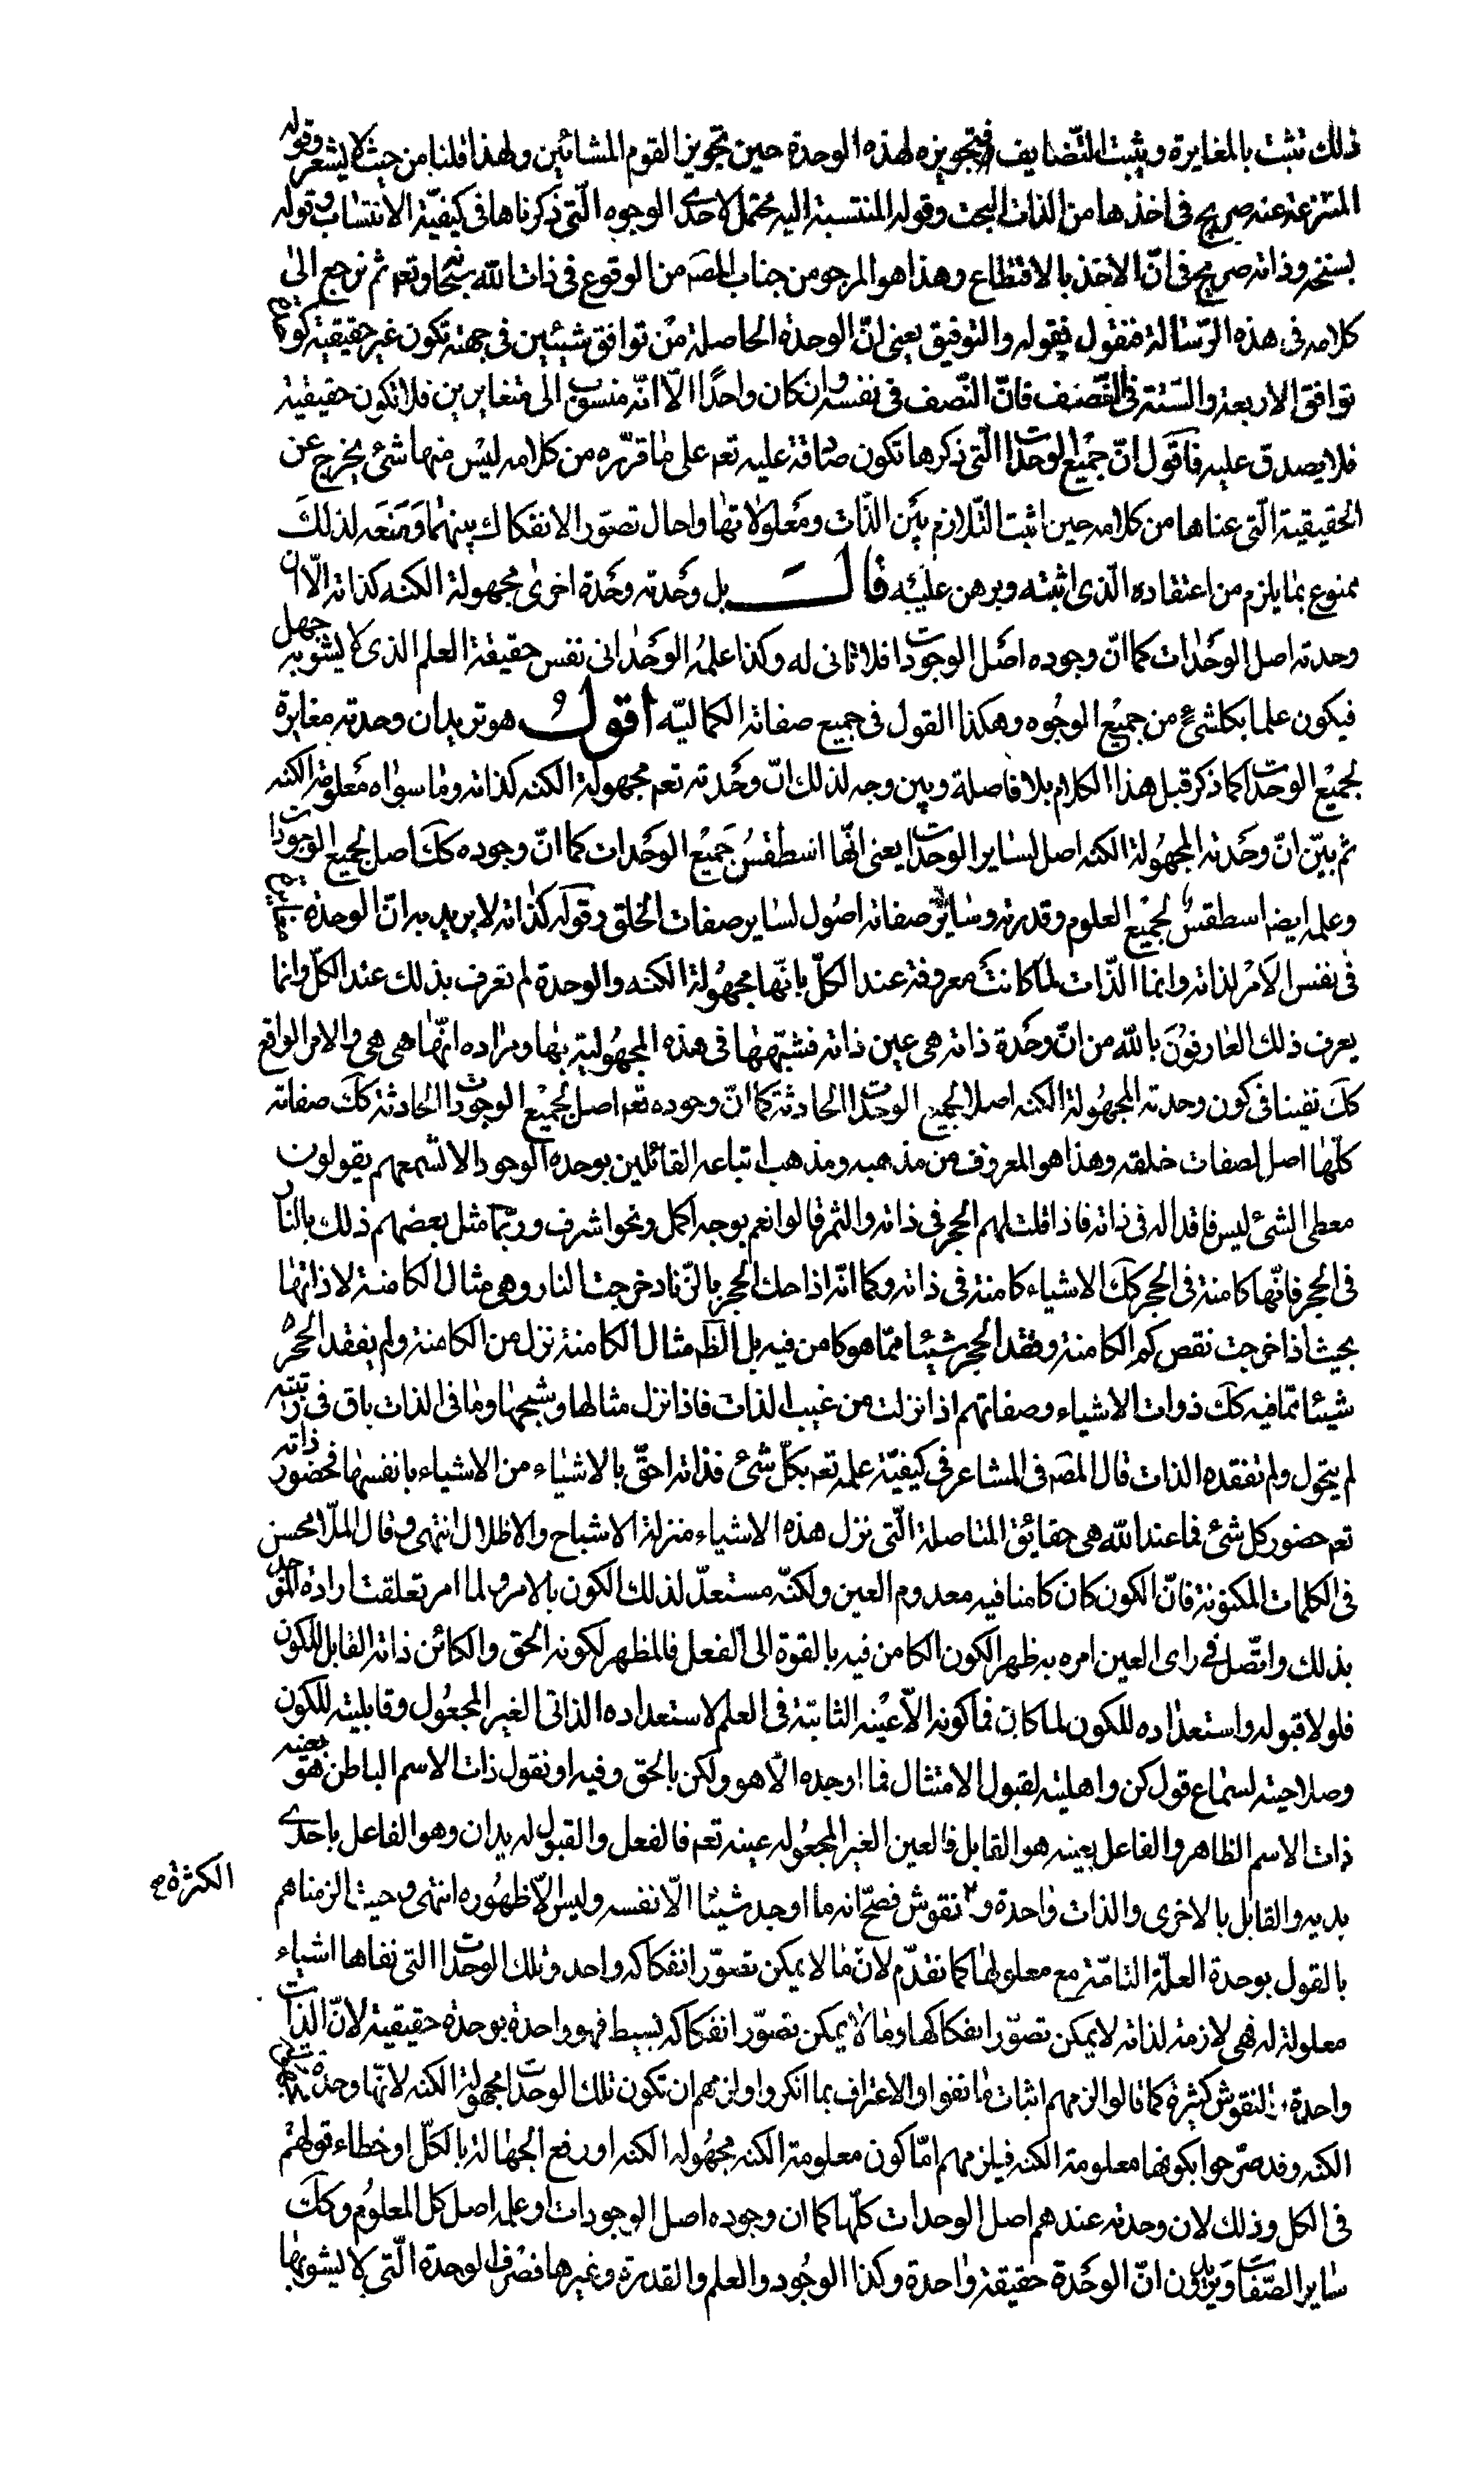 ذلك تثبت بالمغايرة ويثبت التّضايف فتجويزه لهذه الوحدة حين تجويز القوم المشائين ولهذا قلنا من حيث لا يشعر وقوله
المنتزعة عنه صريح فى اخذها من الذات البحت وقوله المنتسبة اليه محتمل لاحدى الوجوه الّتى ذكرناها فى كيفيّة الانتساب وقوله
بسنخه وذاته صريح فى انّ الاخذ بالاقتطاع وهذا هو المرجو من جناب المصَ من الوقوع فى ذات اللّه سبحانه وتعم ثم نرجع الى
كلامه فى هذه الرّسالة فنقول فقوله والتوفيق يعنى انّ الوحدة الحاصلة من توافق شيئين فى جهة تكون غير حقيقية كوحدة
توافق الاربعة والستة فى النّصف فانّ النّصف فى نفسه وان كان واحدًا الّا انّه منسوب الى متغايرين فلا تكون حقيقية
فلا يصدق عليه فاقول انّ جميع الوحدات الّتى ذكرها تكون صادقة عليه تعم على ما قرّره من كلامه ليس منها شئ يخرج عن
الحقيقية الّتى عناها من كلامه حين اثبت التّلازم بين الذّات ومعلولاتها واحال تصوّر الانفكاك بينهما ومنعه لذلك
ممنوع بما يلزم من اعتقاده الّذى اثبته وبرهن عليه قال بل وحدته وحدة اخرى مجهولة الكنه كذاته الّا ان
وحدته اصل الوحدات كما انّ وجوده اصل الوجودات فلا ثانى له وكذا علمه الوحدانى نفس حقيقة العلم الذى لا يشوبه جهل
فيكون علما بكلشئ من جميع الوجوه وهكذا القول فى جميع صفاته الكماليّه اقول هو يريد ان وحدته مغايرة
لجميع الوحدات كما ذكر قبل هذا الكلام بلا فاصلة وبين وجه لذلك انّ وحدته تعم مجهولة الكنه كذاته وما سواه معلومة الكنه
ثم بيّن انّ وحدته المجهولة الكنه اصل لساير الوحدات يعنى انّها اسطقس جميع الوحدات كما انّ وجوده كك اصل لجميع الوجودات
وعلمه ايضا اسطقس لجميع العلوم وقدرته وساير صفاته اصول لساير صفات الخلق وقوله كذاته لا يريد به انّ الوحدة
فى نفس الامر لذاته وانما الذّات لما كانت معروفة عند الكلّ بانّها مجهولة الكنه والوحدة لم تعرف بذلك عند الكلّ وانما
يعرف ذلك العارفون باللّه من انّ وحدة ذاته هى عين ذاته فشبّهها فى هذه المجهوليّة بها ومراده انّها هى هى والامر الواقع
كك نفينا فى كون وحدته المجهولة الكنه اصلا لجميع الوحدات الحادثة كما انّ وجوده تعم اصل لجميع الوجودات الحادثة كك صفاته
كلّها اصل لصفات خلقه وهذا هو المعروف من مذهبه ومذهب اتباعه القائلين بوحدة الوجود الا تسمعهم يقولون
معطى الشئ ليس فاقدا له فى ذاته فاذا قلت لهم الحجر فى ذاته والثمر قالوا نعم بوجه اكمل ونحو اشرف وربّما مثل بعضهم ذلك بالنار
فى الحجر فانّها كامنة فى الحجر كك الاشياء كامنة فى ذاته وكما انّه اذا حك الحجر بالزّناد خرجت النار وهى مثال الكامنة لا ذاتها
بحيث اذا خرجت نقص كم الكامنة وفقد الحجر شيئا ممّا هو كامن فيه بل الظّم مثال الكامنة نزل من الكامنة ولم يفقد الحجر
شيئا ممّا فيه كك ذوات الاشياء وصفاتهم اذا نزلت من غيب الذات فاذا نزل مثالها وشبحها وما فى الذات باق فى رتبته
لم يتحول ولم تفقده الذات قال المصَ فى المشاعر فى كيفيّة علمه تعم بكلّ شئ فذاته احقّ بالاشياء من الاشياء بانفسها فحضور ذاته
تعم حضور كل شئ فما عند اللّه هى حقايق المتاصلة الّتى نزل هذه الاشياء منزلة الاشباح والاظلال انتهى وقال الملّا محسن
فى الكلمات المكنونة فانّ الكون كان كامنا فيه معدوم العين ولكنّه مستعدّ لذلك الكون بالامر ولما امر تعلقت ارادة الموجد
بذلك واتّصل فى راى العين امره به ظهر الكون الكامن فيه بالقوة الى الفعل فالمظهر لكونه الحق والكائن ذاته القابل للكون
فلولا قبوله واستعداده للكون لما كان فما كونه الّا عينه الثابتة فى العلم لاستعداده الذاتى الغير المجعول وقابليته للكون
وصلاحيته لسماع قول كن واهليته لقبول الامتثال فما اوجده الّا هو ولكن بالحق وفيه او نقول ذات الاسم الباطن هو بعينه
ذات الاسم الظاهر والفاعل بعينه هو القابل فالعين الغير المجعوله عينه تعم فالفعل والقبول له يدان وهو الفاعل باحدى
يديه والقابل بالاخرى والذات واحدة و نقوش فصحّ انه ما اوجد شيئا الّا نفسه وليس الّا ظهوره انتهى وحيث الزمناهم
الكثرة صح
بالقول بوحدة العلّة التامّة مع معلولها كما تقدّم لانّ ما لا يمكن تصوّر انفكاكه واحد وتلك الوحدات التى نفاها اشياء
معلولة له فهى لازمة لذاته لا يمكن تصوّر انفكاكها وما لا يمكن تصوّر انفكاكه بسيط فهو واحدة بوحدة حقيقية لانّ الذات
واحدة والنقوش كثيرة كما قالوا لزمهم اثبات ما نفوا والاعتراف بما انكروا ولزمهم ان تكون تلك الوحدات مجهولة الكنه لانّها وحدة
الكنه وقد صرّحوا بكونها معلومة الكنه فيلزمهم امّا كون معلومة الكنه مجهوله الكنه او رفع الجهالة بالكلّ او خطاء قولهم
فى الكل وذلك لان وحدته عندهم اصل الوحدات كلّها كما ان وجوده اصل الوجودات او علمه اصل كل المعلوم وكك
ساير الصّفات ويريدون انّ الوحدة حقيقة واحدة وكذا الوجود والعلم والقدرة وغيرها فصرف الوحدة الّتى لا يشوبها